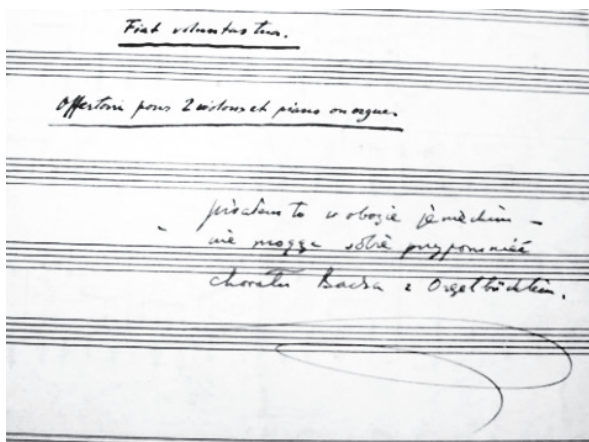 Fiat voluntas tua.
Offertoire pour 2 violons et piano ou orgue.
pisałem to w obozie jenieckim –
nie mogąc sobie przypomnieć
chorału Bacha z Orgelbüchlein.